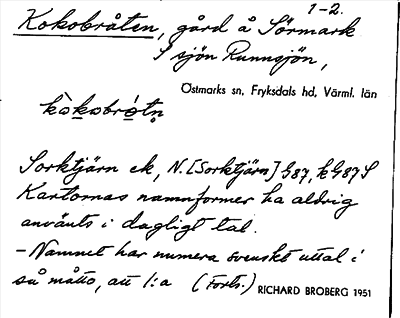 1-2.
Kokobråten, gård å Sörmark
S sjön Runnsjön,
Östmarks sn, Fryksdals hd, Värml. län
kòkobrótn̥
Sorktjärn ek, N.[Sorktjärn] G87, kG87 S
Kartornas namnformer ha aldrig
använts i dagligt tal.
- Namnet har numera svenskt uttal i
så måtto, att 1:a (Forts.)
RICHARD BROBERG 1951